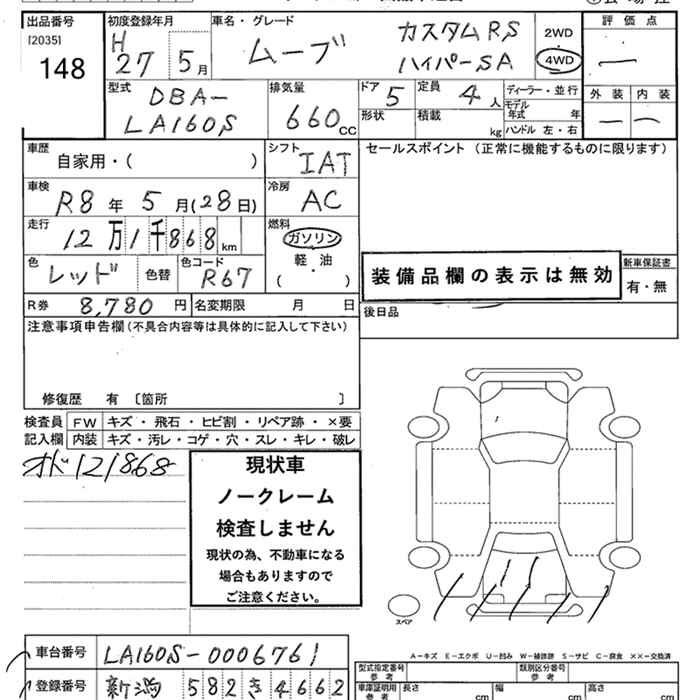 出品番号
[2035]
148
初度登録年月
H
27 5月
車名・グレード
ムーブ
カスタムRS
ハイパーSA
2WD
4WD
評価点
ー
外装 内装
ー ー
型式
DBA-
LA160S
排気量
660cc
ドア 5
定員 4人
形状
積載 kg
ディーラー・並行
モデル年式 年
ハンドル 左・右
車歴
自家用・( )
シフト
IAT
セールスポイント (正常に機能するものに限ります)
車検
R8年 5月(28日)
冷房
AC
走行
12万1千868km
燃料
ガソリン
軽油
・
( )
色
レッド
色替
色コード
R67
装備品欄の表示は無効
新車保証書
有・無
R券 8,780円
名変期限 月 日
後日品
注意事項申告欄(不具合内容等は具体的に記入して下さい)
修復歴 有 〔箇所 〕
検査員記入欄
FW キズ・飛石・ヒビ割・リペア跡・×要
内装 キズ・汚レ・コゲ・穴・スレ・キレ・破レ
オド121868
現状車
ノークレーム
検査しません
現状の為、不動車になる
場合もありますので
ご注意ください。
スペア
A-キズ E-エクボ U-凹み W-補修跡 S-サビ C-腐食 ××-交換済
車台番号 LA160S-0006761
登録番号 新潟 582 き 4662
型式指定番号
参考
類別区分番号
参考
車庫証明用
参考
長さ cm
幅 cm
高さ cm